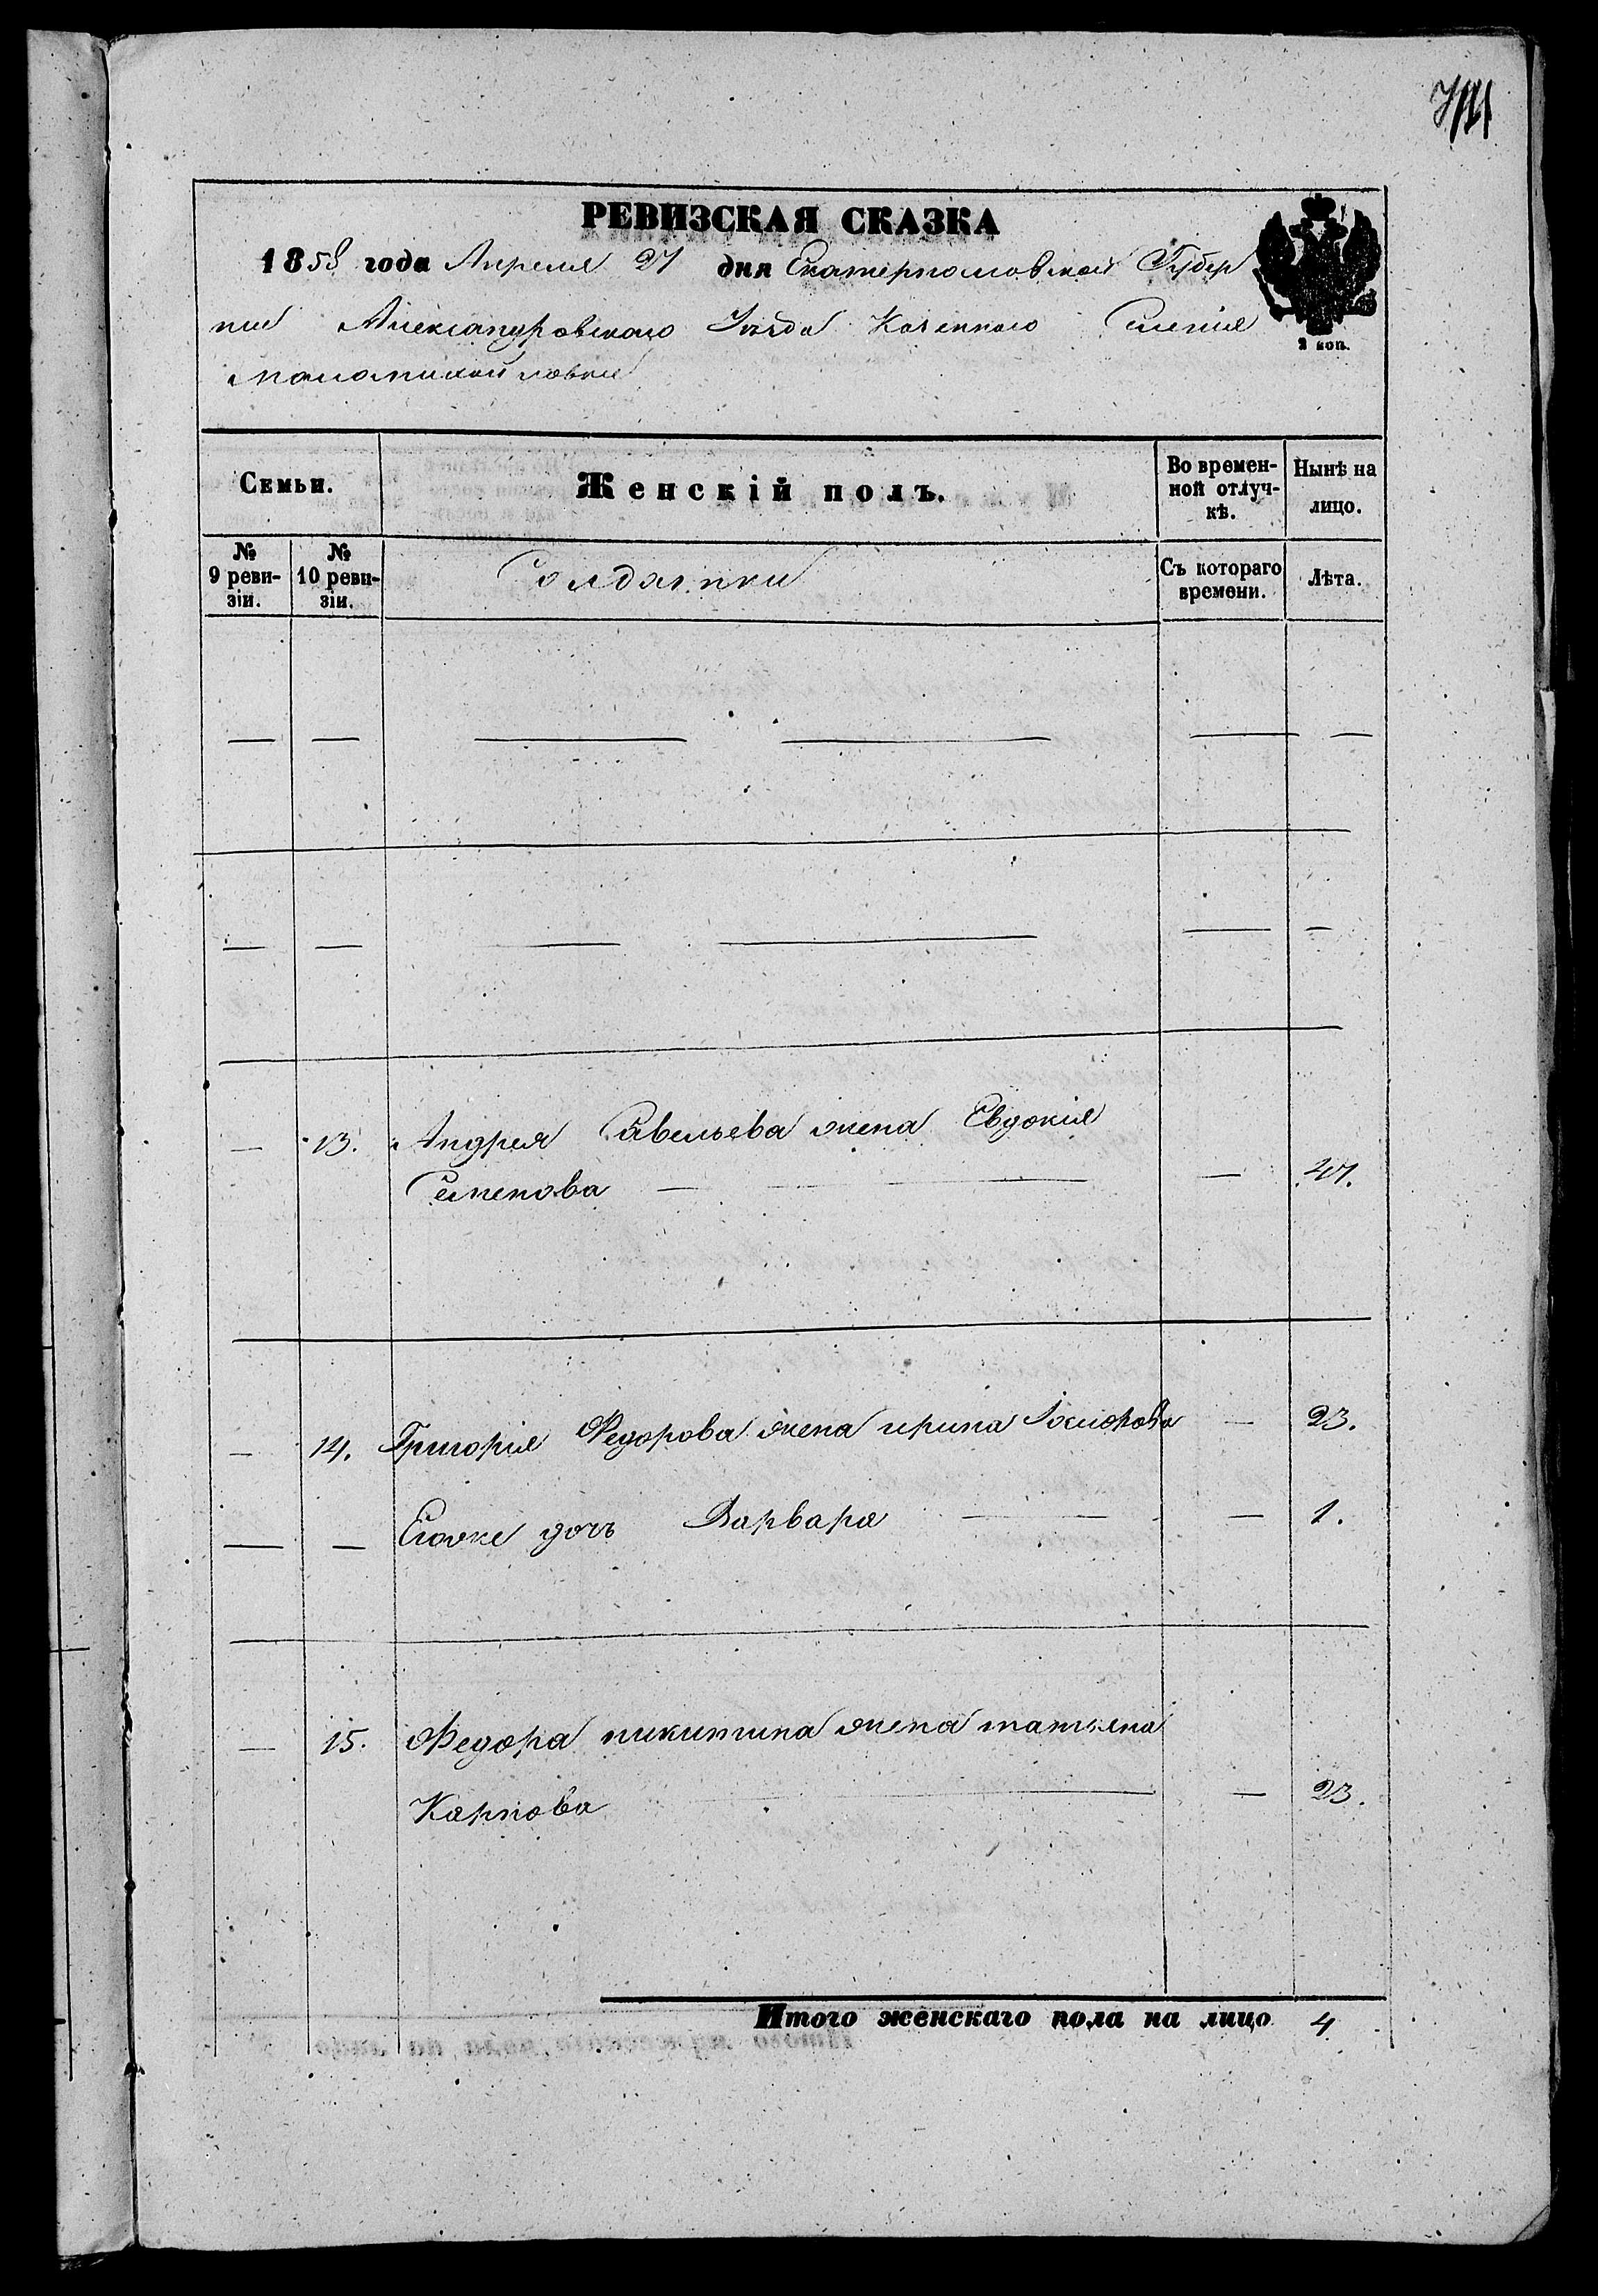 РЕВИЗСКАЯ СКАЗКА
1858 года Апреля 27 дня Екатеринославской Губер
нии Александровского Уезда Казенного Селения
2 коп.
Семьи.
Женскій полъ.
Во времен-
ной отлуч-
кѣ.
Нынѣ на
лицо.
№
9 реви-
зіи.
№
10 реви-
зіи.
Солдатки
Съ котораго
времени.
Лѣта.
— — — — — —
— — — — — —
— 13. Андрея Савельева жена Евдокия
Семенова — — 47.
— 14. Григория Федорова жена ирина — 23.
— — Еговже дочь Варвара — — 1.
— 15. Федора никитина жена татьяна
Карпова — — 23.
Итого женскаго пола на лицо 4